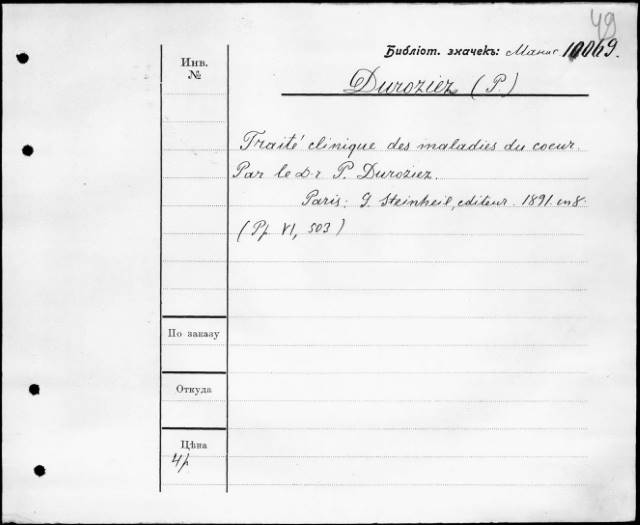 49
Библіот. значекъ: Манис 10069.
Инв.
№
Duroziez (P.)
Traité clinique des maladies du coeur.
Par le Dr P. Duroziez.
Paris: G. Steinheil, editeur. 1891. in 8.
(Pp VI, 503)
По заказу
Откуда
Цѣна
4 р